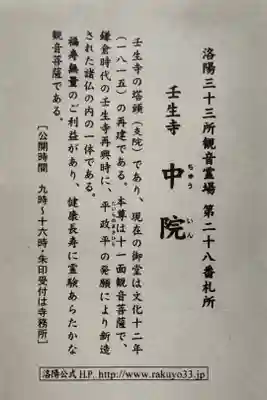 洛陽三十三所観音霊場 第二十八番札所
壬生寺 中院
ちゅう いん
壬生寺の塔頭(支院)であり、現在の御堂は文化十二年
(一八一五)の再建である。本尊は十一面観音菩薩で、
鎌倉時代の壬生寺再興時に、平政平の発願により新造
たいらのまさひら
された諸仏の内の一体である。
福寿無量のご利益があり、健康長寿に霊験あらたかな
観音菩薩である。
〔公開時間 九時〜十六時・朱印受付は寺務所〕
洛陽公式H.P. http://www.rakuyo33.jp/